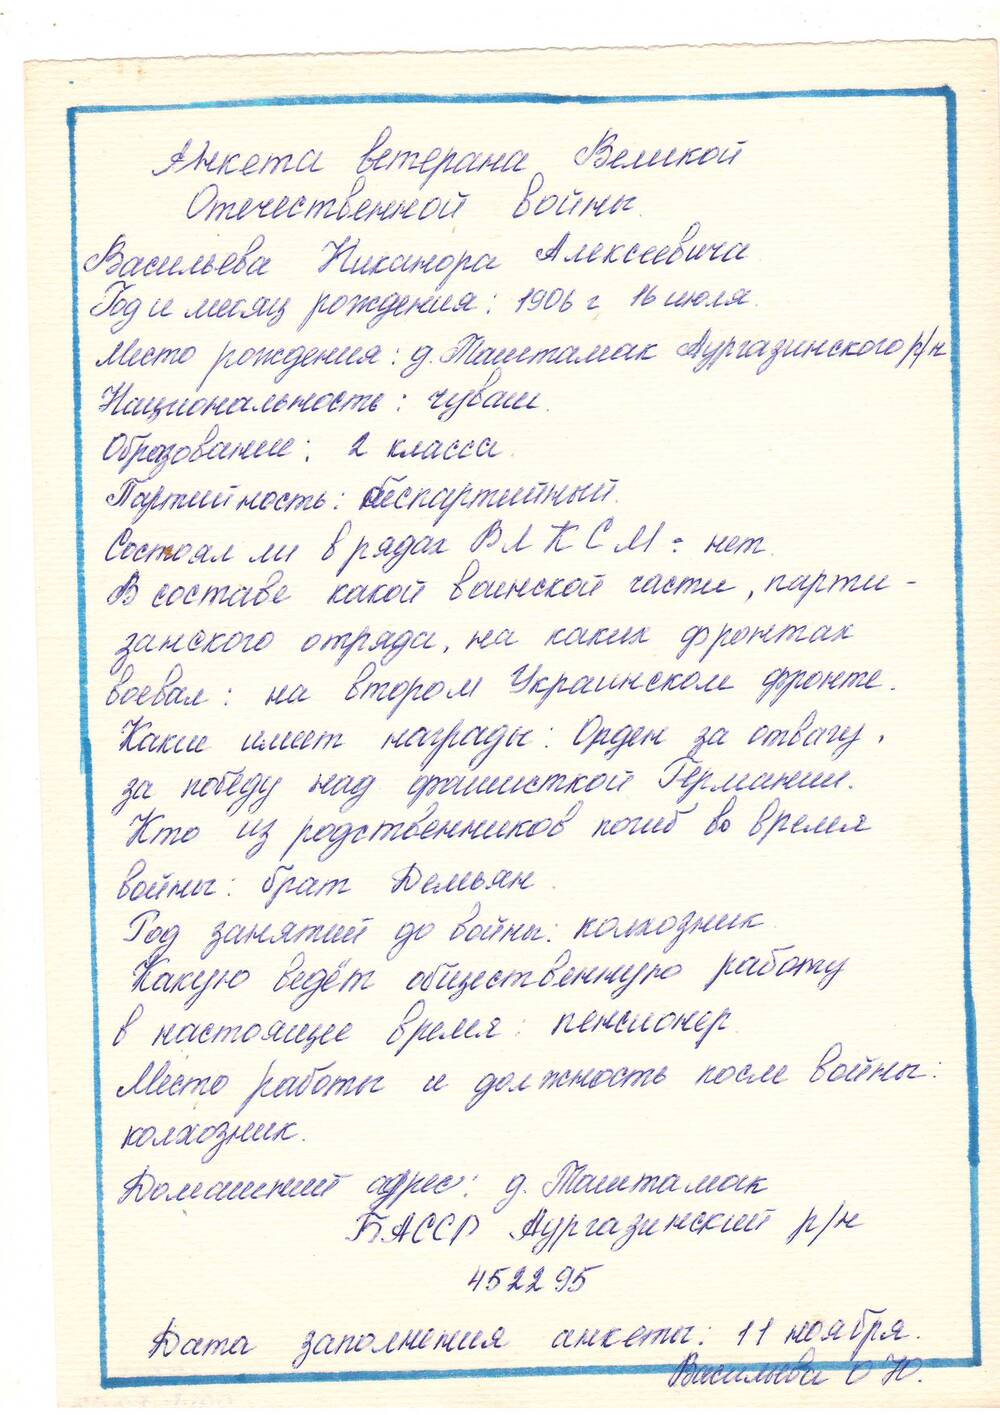 Анкета ветерана Великой
Отечественной войны.
Васильева Никанора Алексеевича
Год и месяц рождения: 1906 г 16 июля.
Место рождения: д. Таштамак Аургазинского р/н
Национальность: чуваш.
Образование: 2 класса
Партийность: беспартийный.
Состоял ли в рядах ВЛКСМ: нет.
В составе какой воинской части, парти-
занского отряда, на каких фронтах
воевал: на втором Украинском фронте.
Какие имеет награды: Орден за отвагу,
за победу над фашисткой Германии.
Кто из родственников погиб во время
войны: брат Демьян.
Род занятий до войны: колхозник.
Какую ведёт общественную работу
в настоящее время: пенсионер.
Место работы и должность после войны:
колхозник.
Домашний адрес: д. Таштамак
БАССР Аургазинский р/н
452295
Дата заполнения анкеты: 11 ноября.
Васильева О Ю.